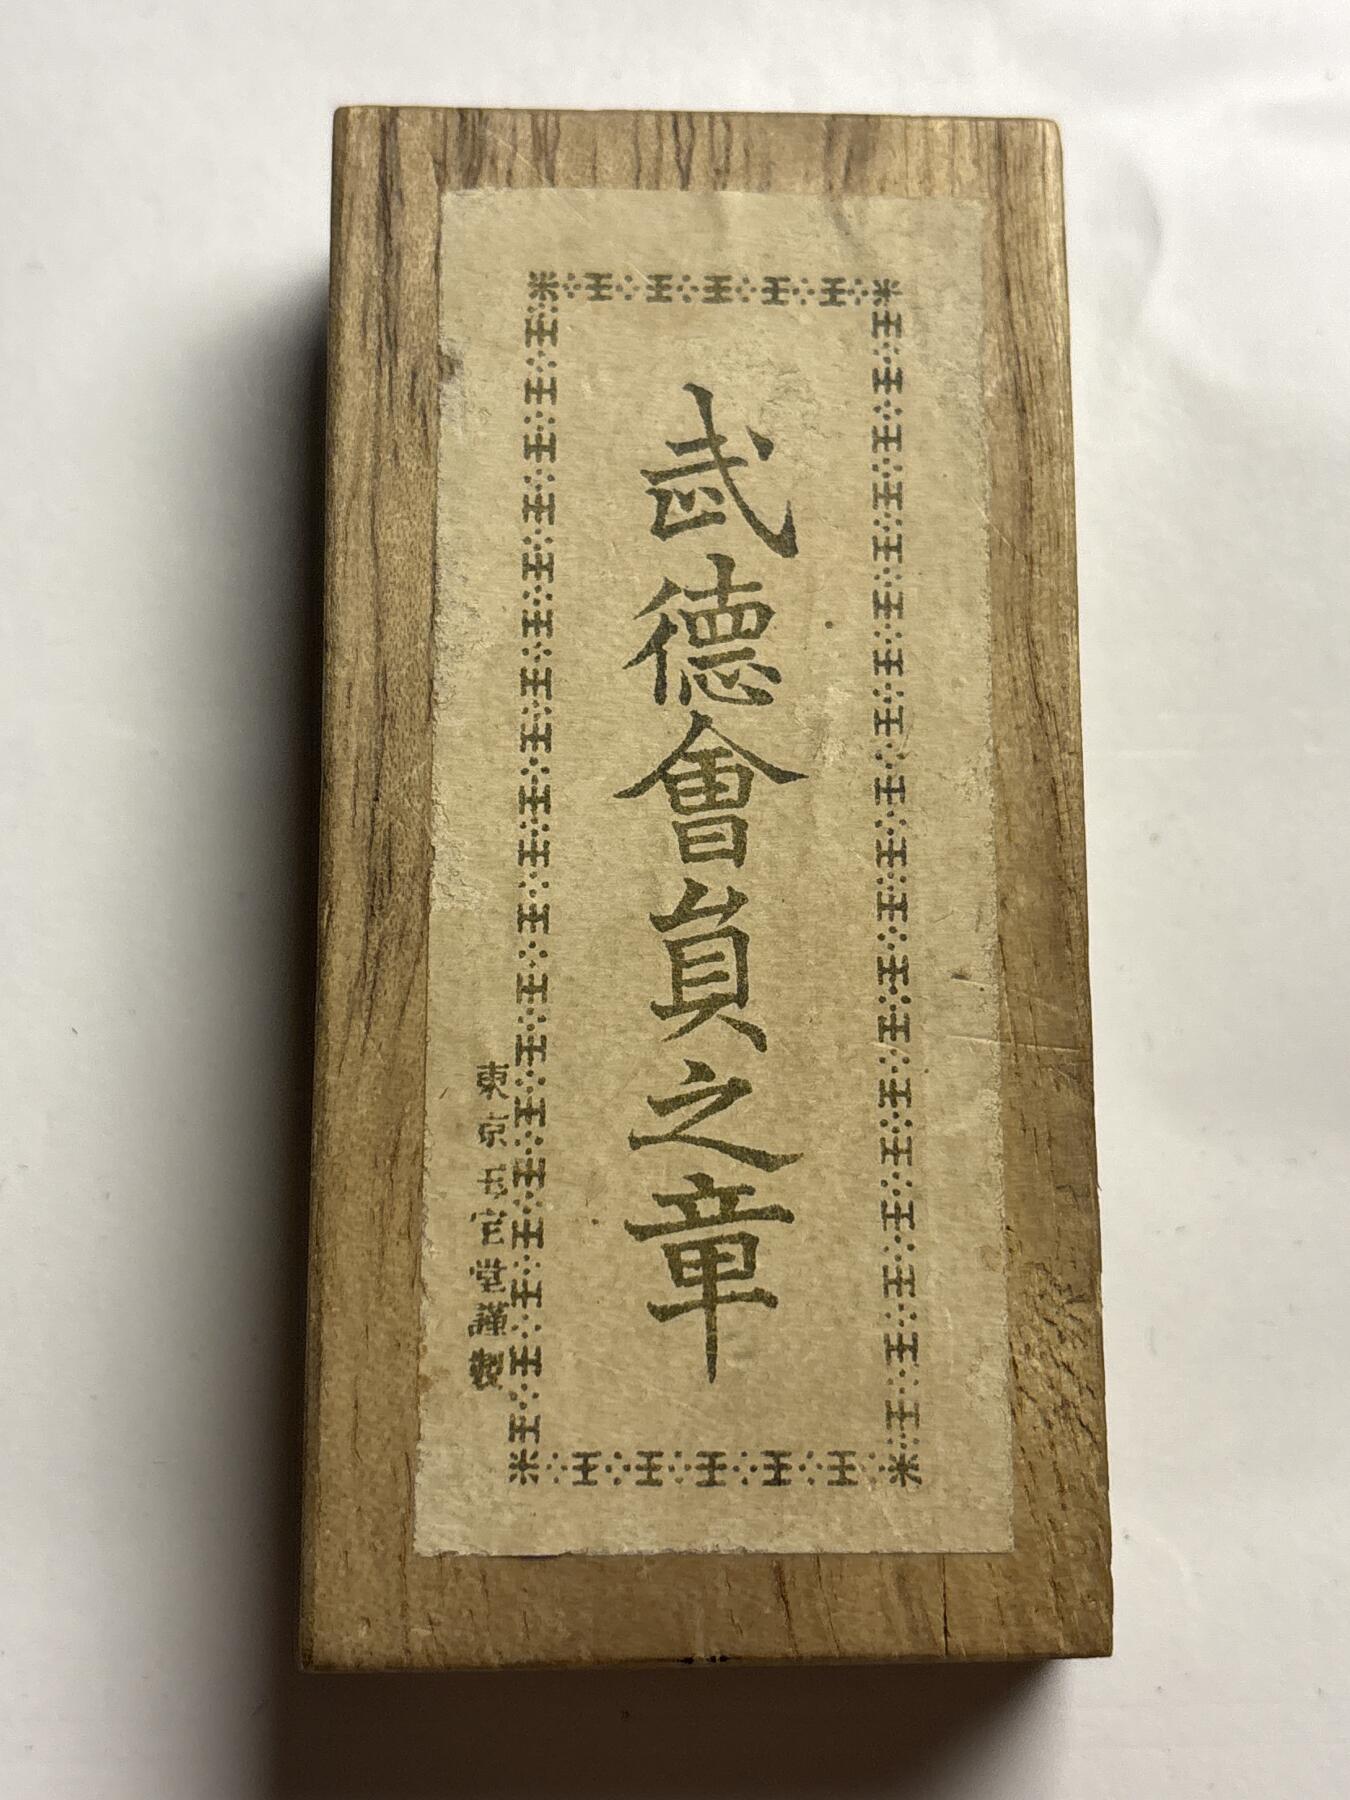 武德會員之章
東京玉宝堂謹製